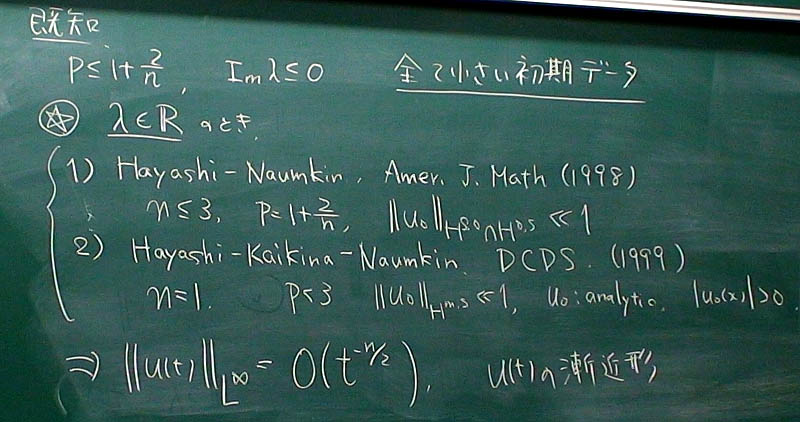 既知
P≤1+2/n, Imλ≤0 全て小さい初期データ
☆ λ∈ℝ のとき,
1) Hayashi-Naumkin, Amer. J. Math (1998)
n≤3, P=1+2/n, ||u₀||_{H^{s,0}∩H^{0,s}} ≪1
2) Hayashi-Kaikina-Naumkin. DCDS. (1999)
n=1. P<3 ||u₀||_{H^{m,s}} ≪1, u₀: analytic. |u₀(x)|>0.
⇒ ||u(t)||_{L^∞} = O(t^{-n/2}), u(t)の漸近形